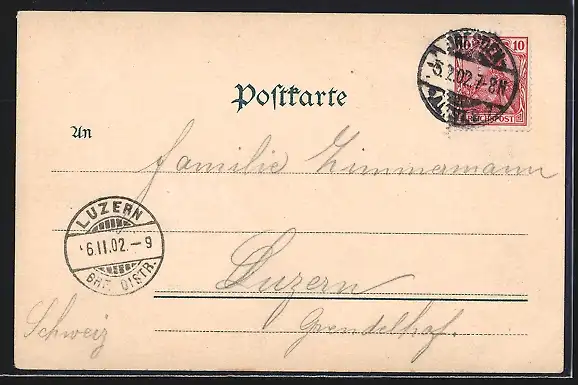 DRESDEN
5.2.02.7-8N
10
REICHSPOST
Postkarte
An
Familie Zimmermann
LUZERN
6.II.02.-9
BRF. DISTR.
Luzern
Schweiz
Grendelhof.